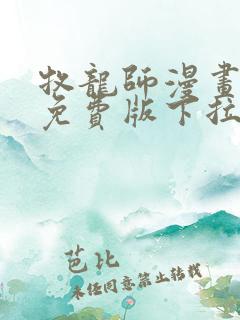 牧龍師漫畫
免費版下拉
芭比
未經同意禁止轉載